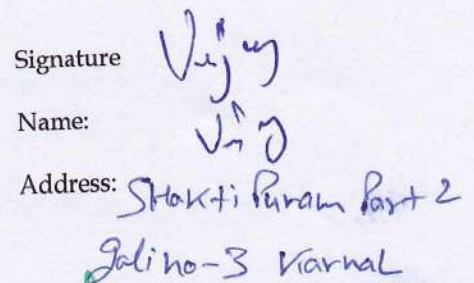 Signature Vijay
Name: Vijay
Address: SHakti Puram Part 2
gali no-3 Karnal